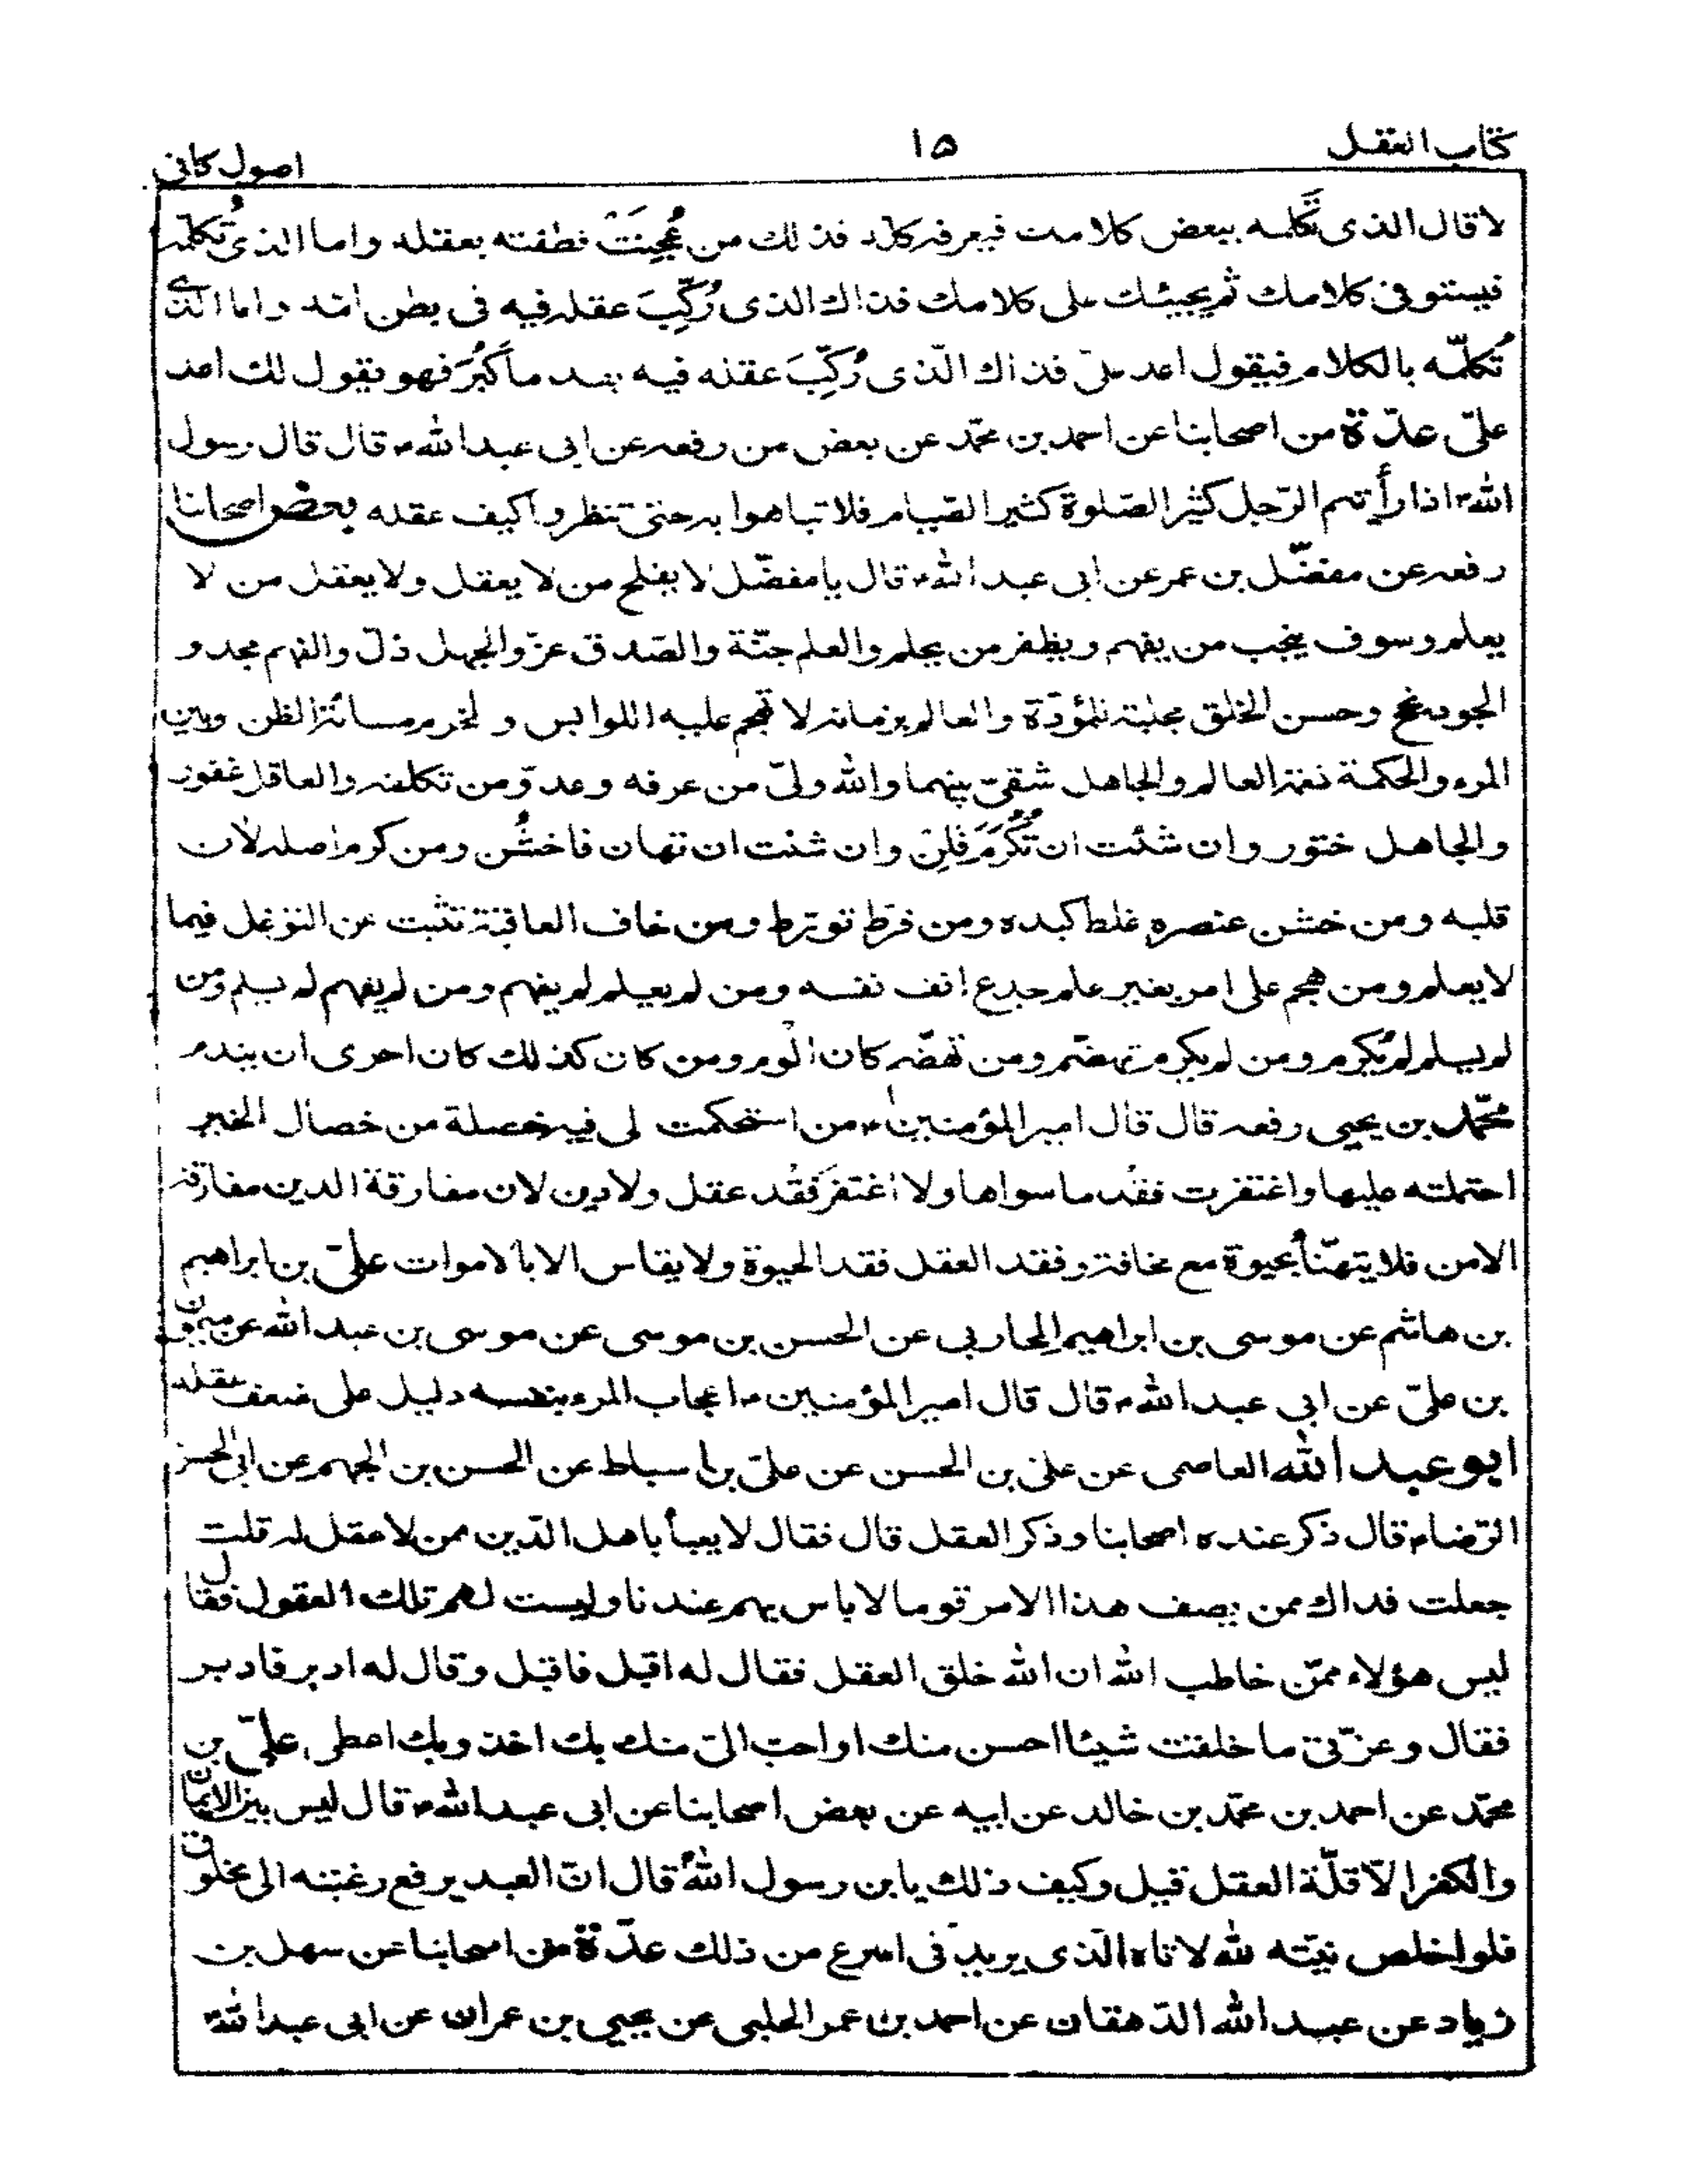 كتاب العقل
١٥
اصول كافى
لا قال الذى تكلمه ببعض كلامك فيعرفه كله فذلك من عُجِنَتْ نطفته بعقله واما الذى تُكلمه
فيستوفى كلامك ثم يجيبك على كلامك فذاك الذى رُكِّبَ عقله فيه فى بطن امّه واما الذى
تُكلّمه بالكلام فيقول اعد علىّ فذاك الّذى رُكِّبَ عقله فيه بعد ما كَبُرَ فهو يقول لك اعد
علىّ عدّة من اصحابنا عن احمد بن محمّد عن بعض من رفعه عن ابى عبد الله ء قال قال رسول
اللهﷺ اذا رأيتم الرّجل كثير الصّلوة كثير الصّيام فلا تباهوا به حتى تنظروا كيف عقله بعض اصحابنا
رفعه عن مفضّل بن عمر عن ابى عبد الله ء قال يا مفضّل لا يفلح من لا يعقل ولا يعقل من لا
يعلم وسوف ينجب من يفهم ويظفر من يحلم والعلم جنّة والصّدق عزّ والجهل ذلّ والفهم مجد و
الجود نجح وحسن الخلق مجلبة للمؤدّة والعالم بزمانه لا تهجم عليه اللوابس والحزم مسائة الظن وبين
المرء والحكمة نعمة العالم والجاهل شقىّ بينهما والله ولىّ من عرفه وعدوّ من تكلفه والعاقل غفور
والجاهل ختور وان شئت ان تُكْرَمَ فَلِنْ وان شئت ان تهان فاخشُن ومن كرم اصله لان
قلبه ومن خشن عنصره غلط كبده ومن فرّط تورّط ومن خاف العاقبة تثبت عن التوغل فيما
لا يعلم ومن هجم على امر بغير علم جدع انف نفسه ومن لم يعلم لم يفهم ومن لم يفهم لم يسلم ومن
لم يسلم لم يُكرم ومن لم يكرم تهضّم ومن تهضّم كان الوم ومن كان كذلك كان احرى ان يندم
محمّد بن يحيى رفعه قال قال امير المؤمنين ء من استحكمت لى فيه خصلة من خصال الخير
احتملته عليها واغتفرت فقد ما سواها ولا اغتفر فَقْد عقل ولا دين لان مفارقة الدين مفارقة
الامن فلا يتهنّأ بحيوة مع مخافة وفقد العقل فقد الحيوة ولا يقاس الا بالاموات علىّ بن ابراهيم
بن هاشم عن موسى بن ابراهيم المحاربى عن الحسن بن موسى عن موسى بن عبد الله عن ميمون
بن علىّ عن ابى عبد الله ء قال قال امير المؤمنين ء اعجاب المرء بنفسه دليل على ضعف عقله
ابو عبد الله العاصمى عن على بن الحسن عن علىّ بن اسباط عن الحسن بن الجهم عن ابى الحسن
الرّضا ء قال ذكر عنده اصحابنا وذكر العقل قال فقال لا يعبأ باهل الدّين ممن لا عقل له قلت
جعلت فداك ممن يصف هذا الامر قوما لا باس بهم عندنا وليست لهم تلك العقول فقال
ليس هؤلاء ممّن خاطب الله ان الله خلق العقل فقال له اقبل فاقبل وقال له ادبر فادبر
فقال وعزّتى ما خلقت شيئا احسن منك او احبّ الىّ منك بك اخذ وبك اعطى علىّ بن
محمّد عن احمد بن محمّد بن خالد عن ابيه عن بعض اصحابنا عن ابى عبد الله ء قال ليس بين الايمان
والكفر الّا قلّة العقل قيل وكيف ذلك يا بن رسول الله قال انّ العبد يرفع رغبته الى مخلوق
فلو اخلص نيّته لله لاتاه الّذى يريد فى اسرع من ذلك عدّة من اصحابنا عن سهل بن
زياد عن عبيد الله الدّهقان عن احمد بن عمر الحلبى عن يحيى بن عمران عن ابى عبد الله ء